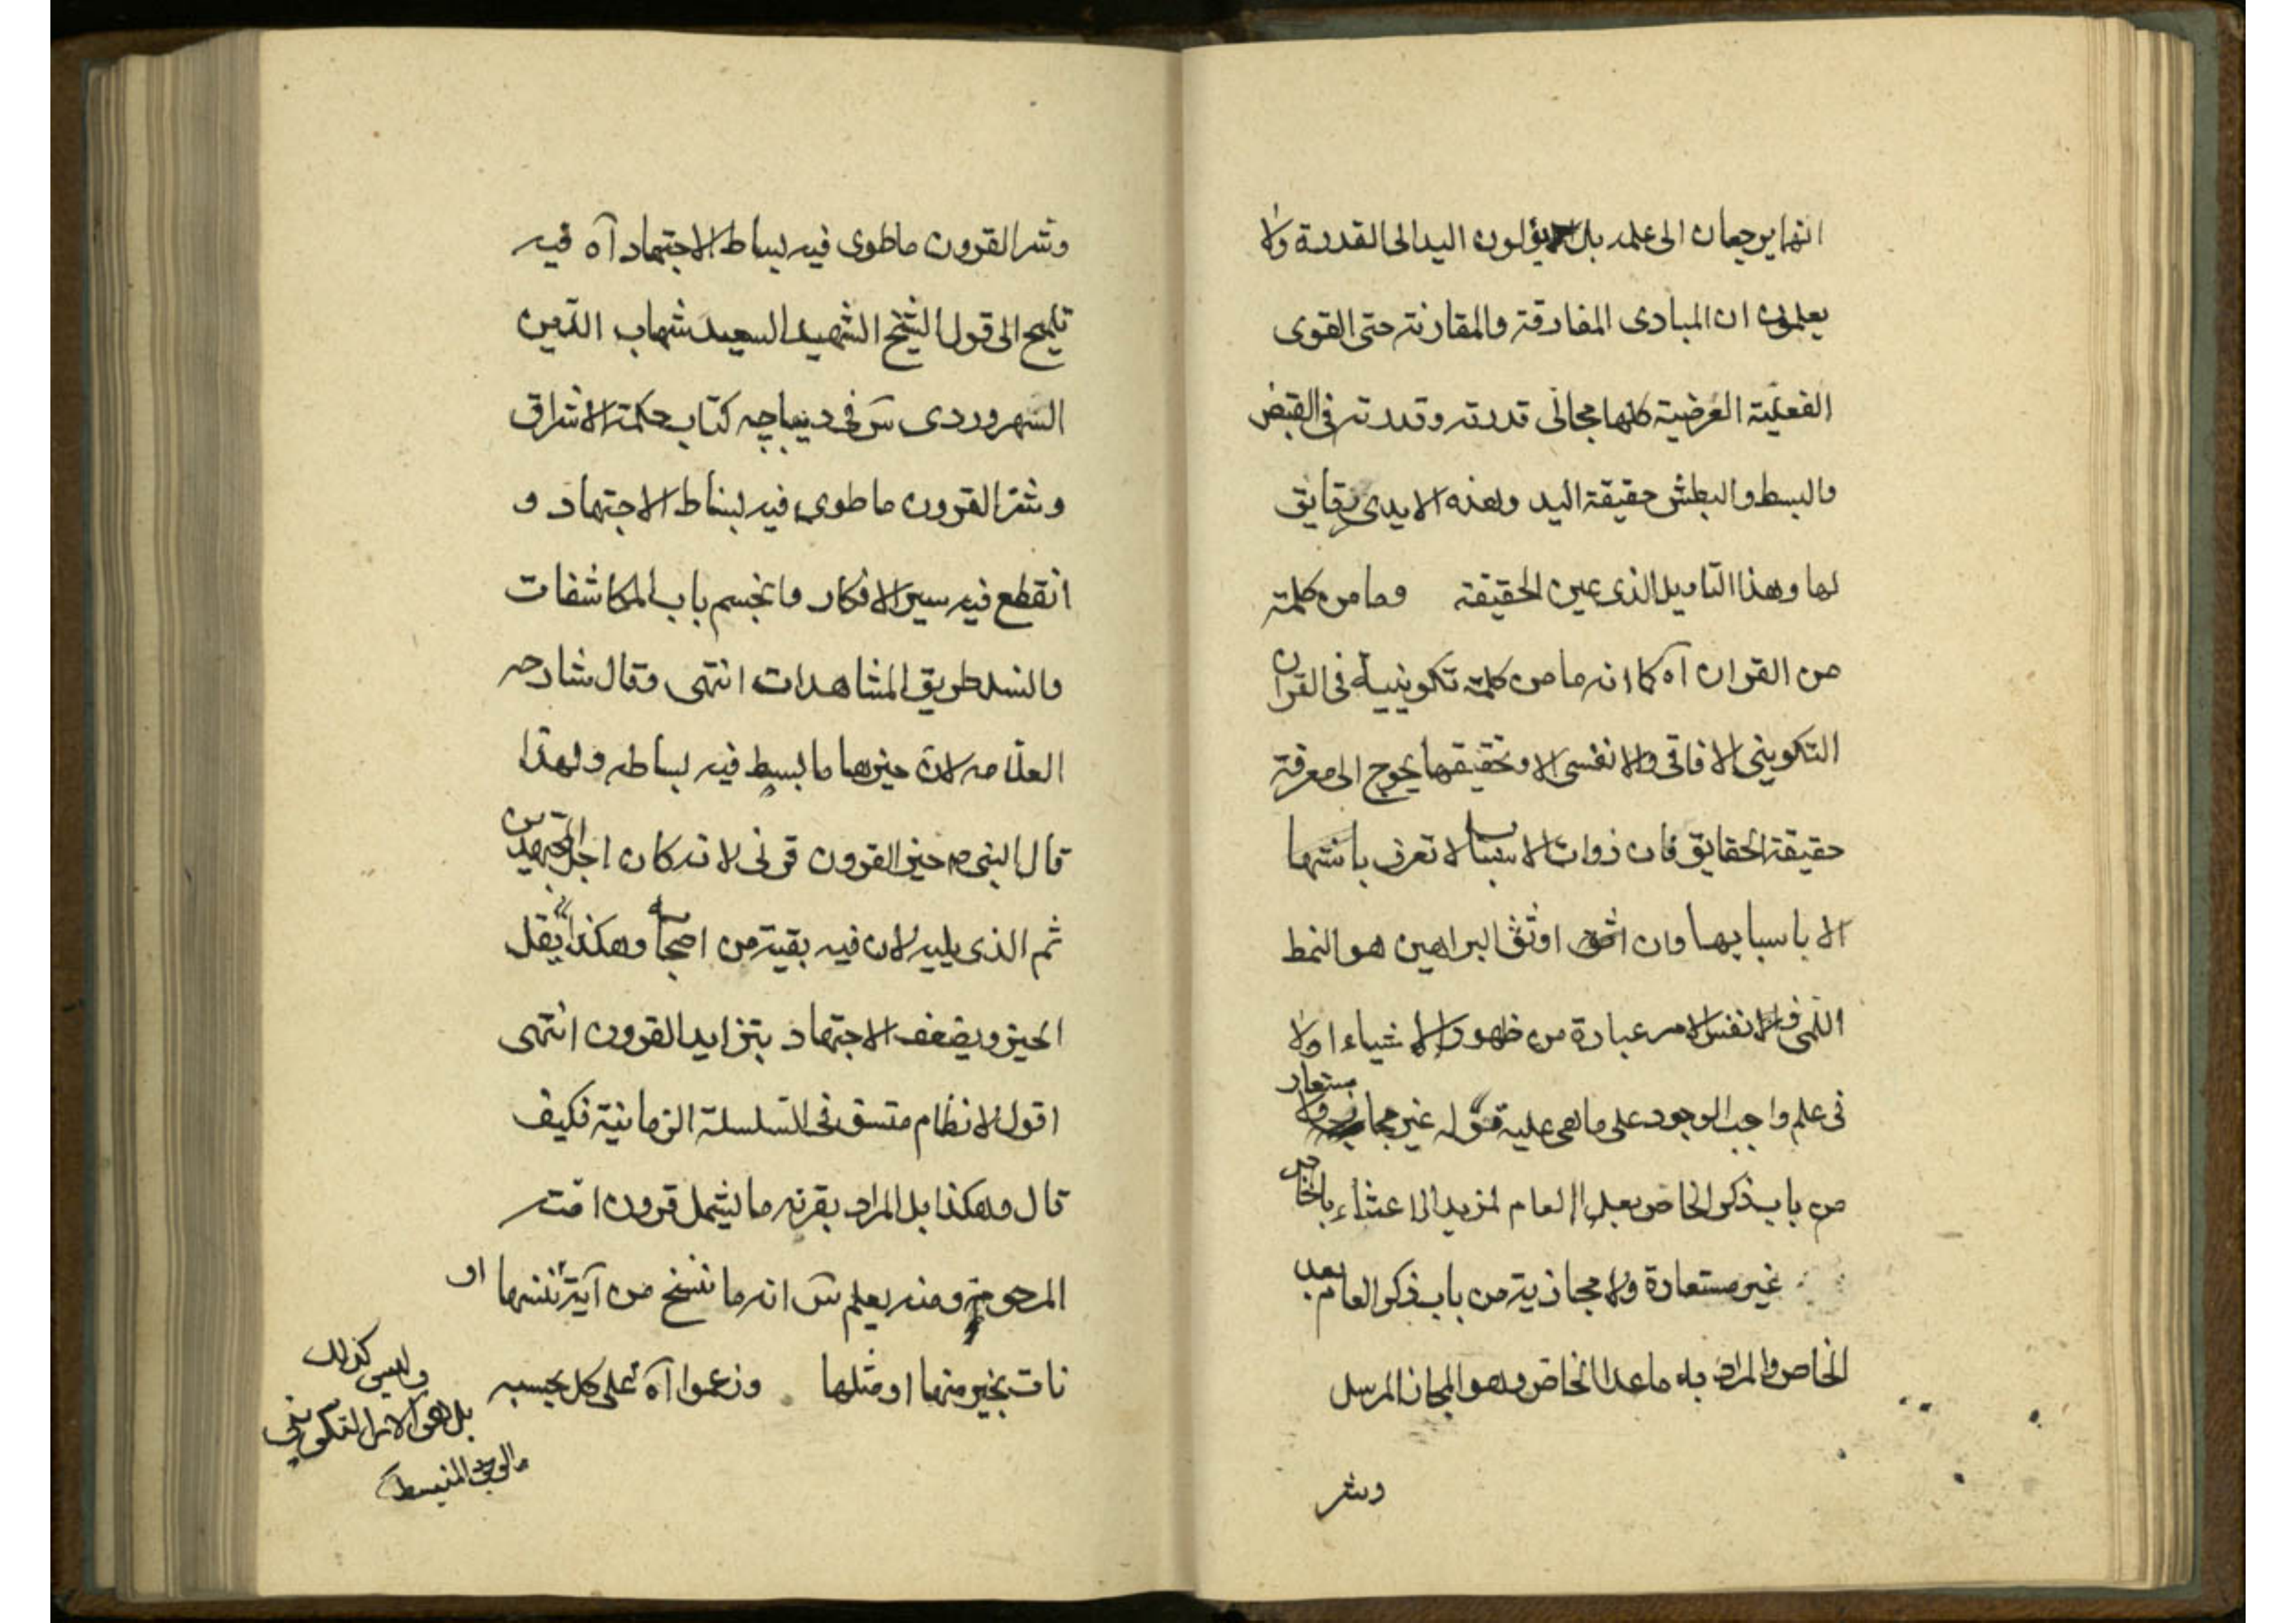 انهما يرجعان الى علمه بل يؤلون اليد الى القدرة ولا
يعلمون ان المبادى المفارقة والمقارنة حتى القوى
الفعلية العرضية كلها مجالى قدرته وقدرته فى القبض
والبسط والبطش حقيقة اليد وهذه الايدى رقايق
لها وهذا التاويل الذى عين الحقيقة وما من كلمة
من القران آه كما انه ما من كلمة تكوينية فى القران
التكوينى الافاقى والانفسى الا وتحقيقها يحوج الى معرفة
حقيقة الحقايق فان ذوات الاسباب لا تعرف بانيتها
الا باسبابها وان اوثق البراهين هو النمط
اللمى ونفس الامر عبارة من ظهور الاشياء اولا
فى علم واجب الوجود على ما هى عليه قوله غير مجاز ولا مستعار
من باب ذكر الخاص بعد العام لمزيد الاعتناء بالخاص
غير مستعارة ولا مجازية من باب ذكر العام بعد
الخاص والمراد به ما عدا الخاص وهو المجاز المرسل
وشر
وشر القرون ما طوى فيه بساط الاجتهاد آه فيه
تلميح الى قول الشيخ الشهيد السعيد شهاب الدين
السهروردى س فى ديباچه كتاب حكمة الاشراق
وشر القرون ما طوى فيه بساط الاجتهاد و
انقطع فيه سير الافكار وانحسم باب المكاشفات
وانسد طريق المشاهدات انتهى وقال شارحه
العلامه لان خيرها ما بسط فيه بساطه ولهذا
قال النبى ص خير القرون قرنى لانه كان اجل المجتهدين
ثم الذى يليه لان فيه بقية من اصحابه وهكذا يقل
الخير ويضعف الاجتهاد بتزايد القرون انتهى
اقول لا نظام متسق فى السلسلة الزمانية فكيف
قال وهكذا بل المراد بقرنه ما يشمل قرون امته
المرحومة ومنه يعلم س انه ما ننسخ من آية او ننسها
نات بخير منها او مثلها وزعموا آه على كل بحسبه
وليس كذلك
بل هى الامر التكوينى
والوجود المنبسط